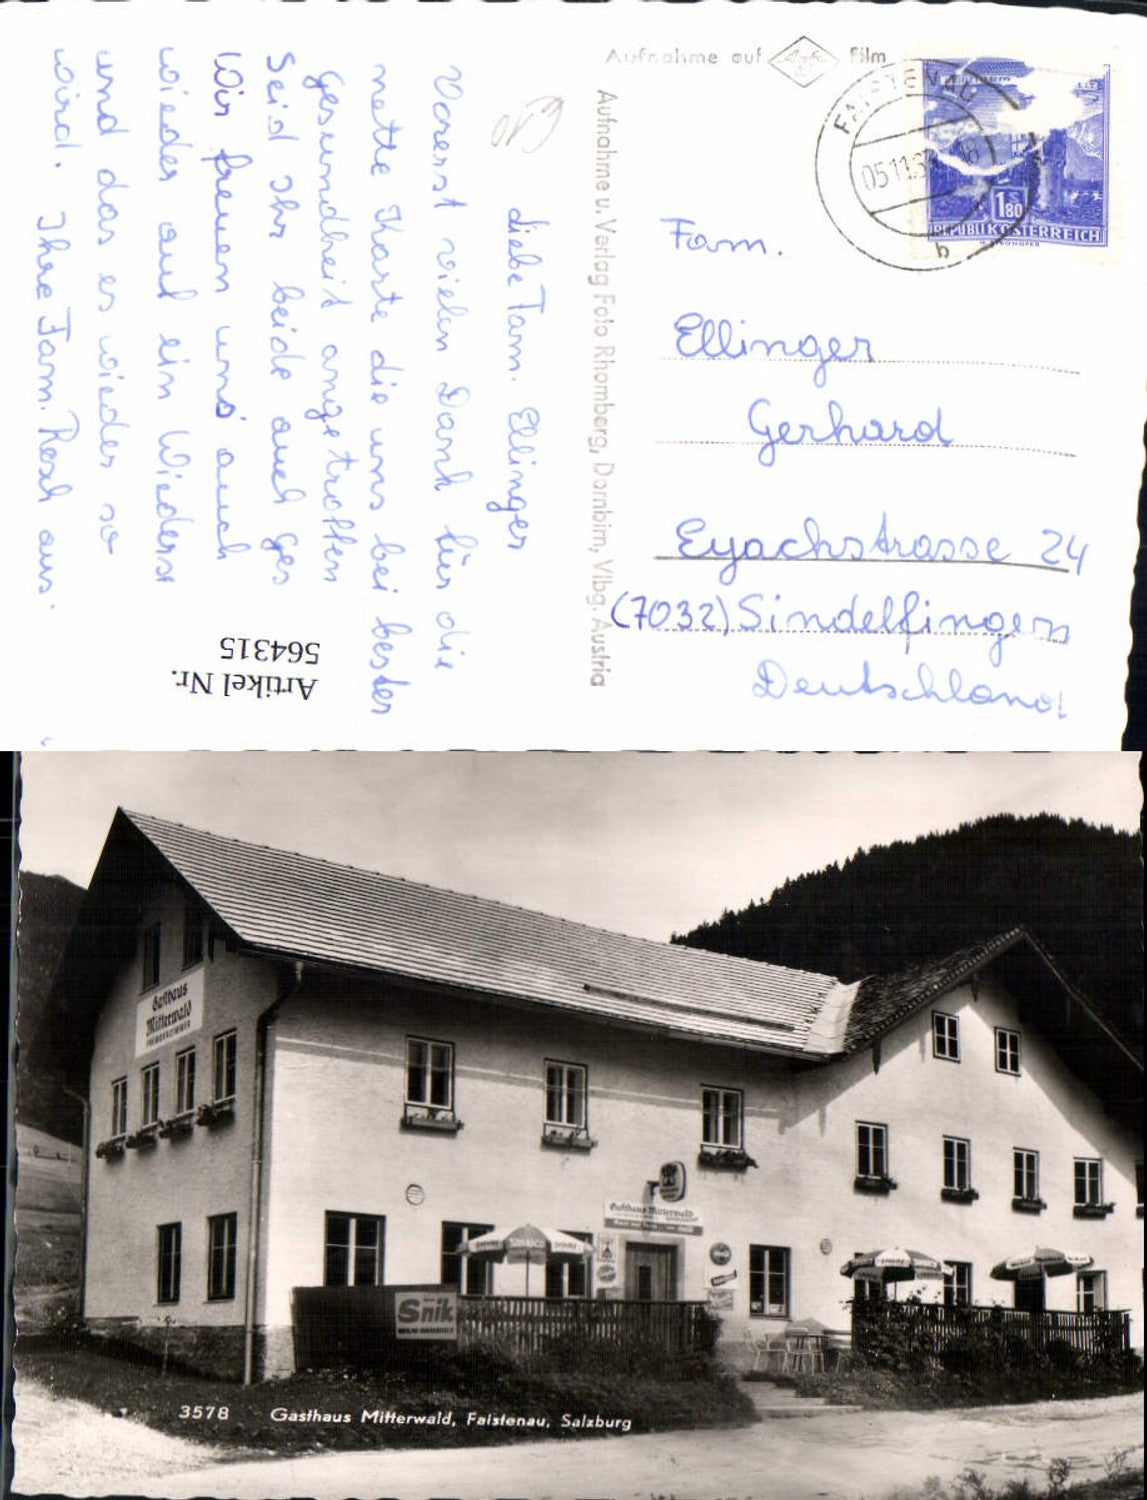 Aufnahme auf Agfa Film
FAISTENAU
05.11.6
18
b
1.80
REPUBLIK ÖSTERREICH
Fam.
Ellinger
Gerhard
Eyachstrasse 24
(7032) Sindelfingen
Deutschland
Aufnahme u. Verlag Foto Rhomberg, Dornbirn, Vlbg. Austria
Liebe Fam. Ellinger
Vorerst vielen Dank für die
nette Karte die uns bei bester
Gesundheit angetroffen
Seid Ihr beide auch ges
Wir freuen uns auch
wieder auf ein Wiederse
und das es wieder so
wird. Ihre Fam. Resch aus.
Artikel Nr.
564315
Gasthaus
Mitterwald
FREMDENZIMMER
Gasthaus Mitterwald
SINALCO
Snik
3578 Gasthaus Mitterwald, Faistenau, Salzburg